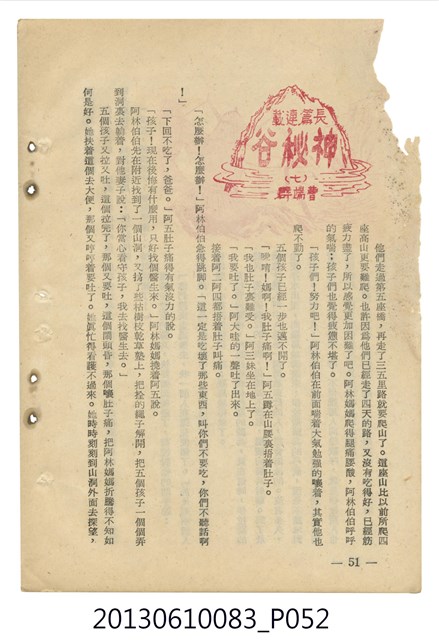 長篇連載
神秘谷
(七)
曹端群
他們走過第五座橋，再走了三五里路就要爬山了。這座山比以前所爬四
座高山更要難爬。也許因爲他們已經走了四天的路，又沒有吃得好，已經筋
疲力盡了，所以感覺更加困難了吧。阿林媽媽爬得腿痛腰酸，阿林伯伯呼呼
的氣喘；孩子們也覺得疲憊不堪了。
「孩子們！努力吧！」阿林伯伯在前面喘着大氣勉強的嚷着，其實他也
爬不動了。
五個孩子已經一步也邁不開了。
「唉唷！媽啊！我肚子痛啊！」阿五蹲在山腰裏捂着肚子。
「我也肚子裏難受。」阿三妹坐在地上了。
「我要吐了。」阿大哇的一聲吐了出來。
接着阿二阿四都捂着肚子叫痛。
「怎麼辦！怎麼辦！」阿林伯伯覺得跳脚。「這一定是吃壞了那些東西，叫你們不要吃，你們不聽話啊
！」
「下回不吃了，爸爸。」阿五肚子痛得有氣沒力的說。
「孩子！現在後悔有什麼用，只好找個醫生來。」阿林媽媽摟着阿五說。
阿林伯伯先在附近找到了一個山洞，又搞了些枯樹枝乾草墊上，把拴的繩子解開，把五個孩子一個個弄
到洞裏去躺着，對他妻子說：「你當心看守孩子，我去找醫生去。」
五個孩子又拉又吐，這個拉完了，那個又要吐，這個頭昏，那個嚷肚子痛，把阿林媽媽折騰得不知如
何是好。她扶着這個去大便，那個又哼哼着要吐了。她眞忙得看護不過來。她時時刻刻到山洞外面去探望，
— 51 —
20130610083_P052